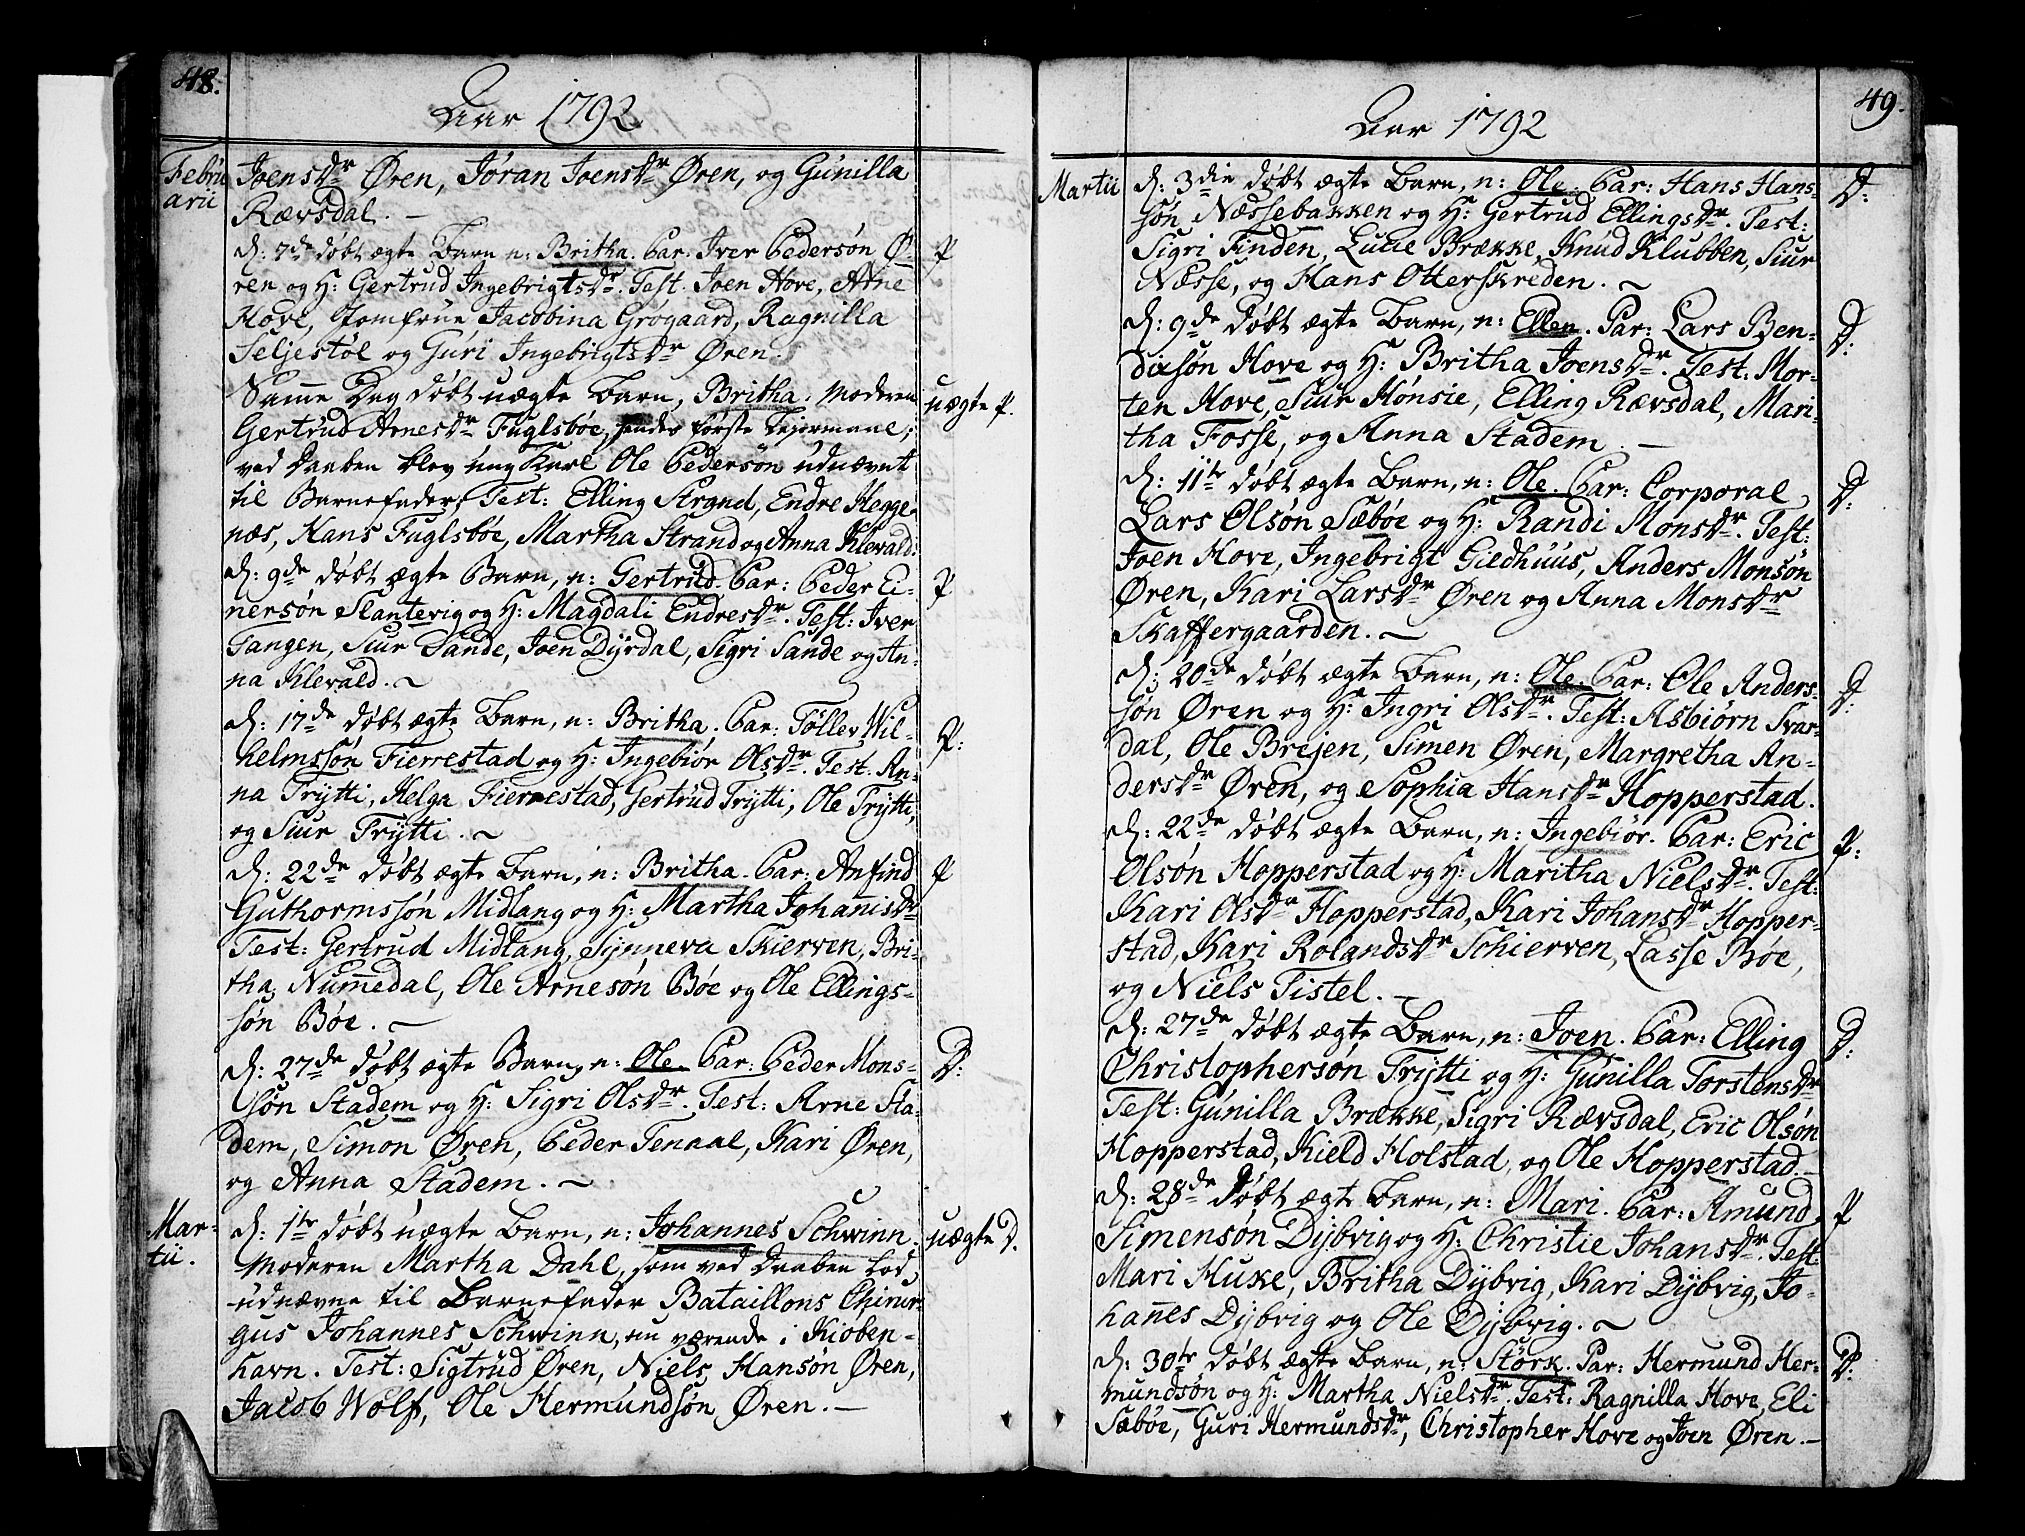 48.
Aar 1792
Febru
arii
Joensdr Øren, Jøran Joensdr Øren, og Gunilla
Rævsdal. —
d: 7de døbt ægte Barn n: Britha. Par: Iver Pedersøn Ø-
ren og H: Gertrud Ingebrigtsdr. Test. Joen Hove, Arne
Hove, Jomfrue Jacobina Grøgaard, Ragnilla
Seljestøl og Guri Ingebrigtsdr Øren.
P
Samme Dag døbt uægte Barn, Britha. Moderen
Gertrud Arnesdr Fuglsbøe, hendes første Lejermaal;
ved Daaben blev ung Karl Ole Pedersøn udnævnt
til Barnefader; Test: Elling Strand, Endre Hegge-
næs, Hans Fuglsbøe, Martha Strand og Anna Klevald.
uægte P.
d: 9de døbt ægte Barn, n: Gertrud. Par: Peder Ei-
nersøn Slantevig og H: Magdali Endresdr. Test: Iver
Tangen, Siur Sande, Joen Dyrdal, Sigri Sande og An-
na Klevald. ~
P
d: 17de døbt ægte Barn, n: Britha. Par: Tøllev Wil-
helmssøn Fierrestad og H: Ingebiør Olsdr. Test. An-
na Trytti, Helga Fierrestad, Gertrud Trytti, Ole Trytti,
og Siur Trytti. ~
P:
d: 22de døbt ægte Barn, n: Britha. Par: Anfind
Guthormssøn Midlang og H: Martha Johanisdr
Test: Gertrud Midlang, Synneva Skierven, Bri-
tha Nummedal, Ole Arnesøn Bøe og Ole Ellings-
søn Bøe. ~
P
d: 27de døbt ægte Barn, n: Ole. Par: Peder Mons-
søn Stadem og H: Sigri Olsdr. Test: Arne Sta-
dem, Simon Øren, Peder Tenaal, Kari Øren,
og Anna Stadem. ~
D:
Mar-
tii.
d: 1te døbt uægte Barn, n: Johannes Schwinn.
Moderen Martha Dahl, som ved Daaben lod
udnævne til Barnefader Bataillons Chirur-
gus Johannes Schwinn, nu værende i Kiøben-
havn. Test: Sigtrud Øren, Niels Hansøn Øren,
Jacob Wolf, Ole Hermundsøn Øren. —
uægte D.
49.
Aar 1792
Martii
d: 3die døbt ægte Barn, n: Ole. Par: Hans Hans-
søn Næssebakken og H: Gertrud Ellingsdr. Test:
Sigri Finden, Lucie Brække, Knud Klubben, Siur
Næsse, og Hans Otterskreden. ~
D:
d: 9de døbt ægte Barn, n: Ellen. Par: Lars Ben-
dixsøn Hove og H: Britha Joensdr. Test: Mor-
ten Hove, Siur Hønsie, Elling Rævsdal, Mari-
tha Fosse, og Anna Stadem —
D:
d: 11te døbt ægte Barn, n: Ole. Par: Corporal
Lars Olsøn Sæbøe og H: Randi Monsdr. Test:
Joen Hove, Ingebrigt Gieldhuus, Anders Monsøn
Øren, Kari Larsdr Øren og Anna Monsdr
Skaffergaarden. ~
D:
d: 20de døbt ægte Barn, n: Ole. Par: Ole Anders-
søn Øren og H: Ingri Olsdr. Test: Asbiørn Svar-
dal, Ole Brejen, Simen Øren, Margretha An-
dersdr Øren, og Sophia Hansdr Hopperstad.
D:
d: 22de døbt ægte Barn, n: Ingebiør. Par: Eric
Olsøn Hopperstad og H: Maritha Nielsdr. Test:
Kari Olsdr Hopperstad, Kari Johansdr Hopper-
stad, Kari Rolandsdr Schierven, Lasse Bøe,
og Niels Tistel. —
P:
d: 27de døbt ægte Barn, n: Joen. Par: Elling
Christophersøn Trytti og H: Gunilla Torstensdr
Test: Gunilla Brække, Sigri Rævsdal, Eric Olsøn
Hopperstad, Kield Holstad, og Ole Hopperstad. —
D:
d: 28de døbt ægte Barn, n: Mari. Par: Amund
Simensøn Dybvig og H: Christie Johansdr. Test
Mari Huke, Britha Dybvig, Kari Dybvig, Jo-
hannes Dybvig og Ole Dybvig. ~
P
d: 30te døbt ægte Barn, n: Størk. Par: Hermund Her-
mundsøn og H: Martha Nielsdr. Test: Ragnilla Hove, Eli
Sæbøe, Guri Hermundsdr, Christopher Hove og Joen Øren. —
D: